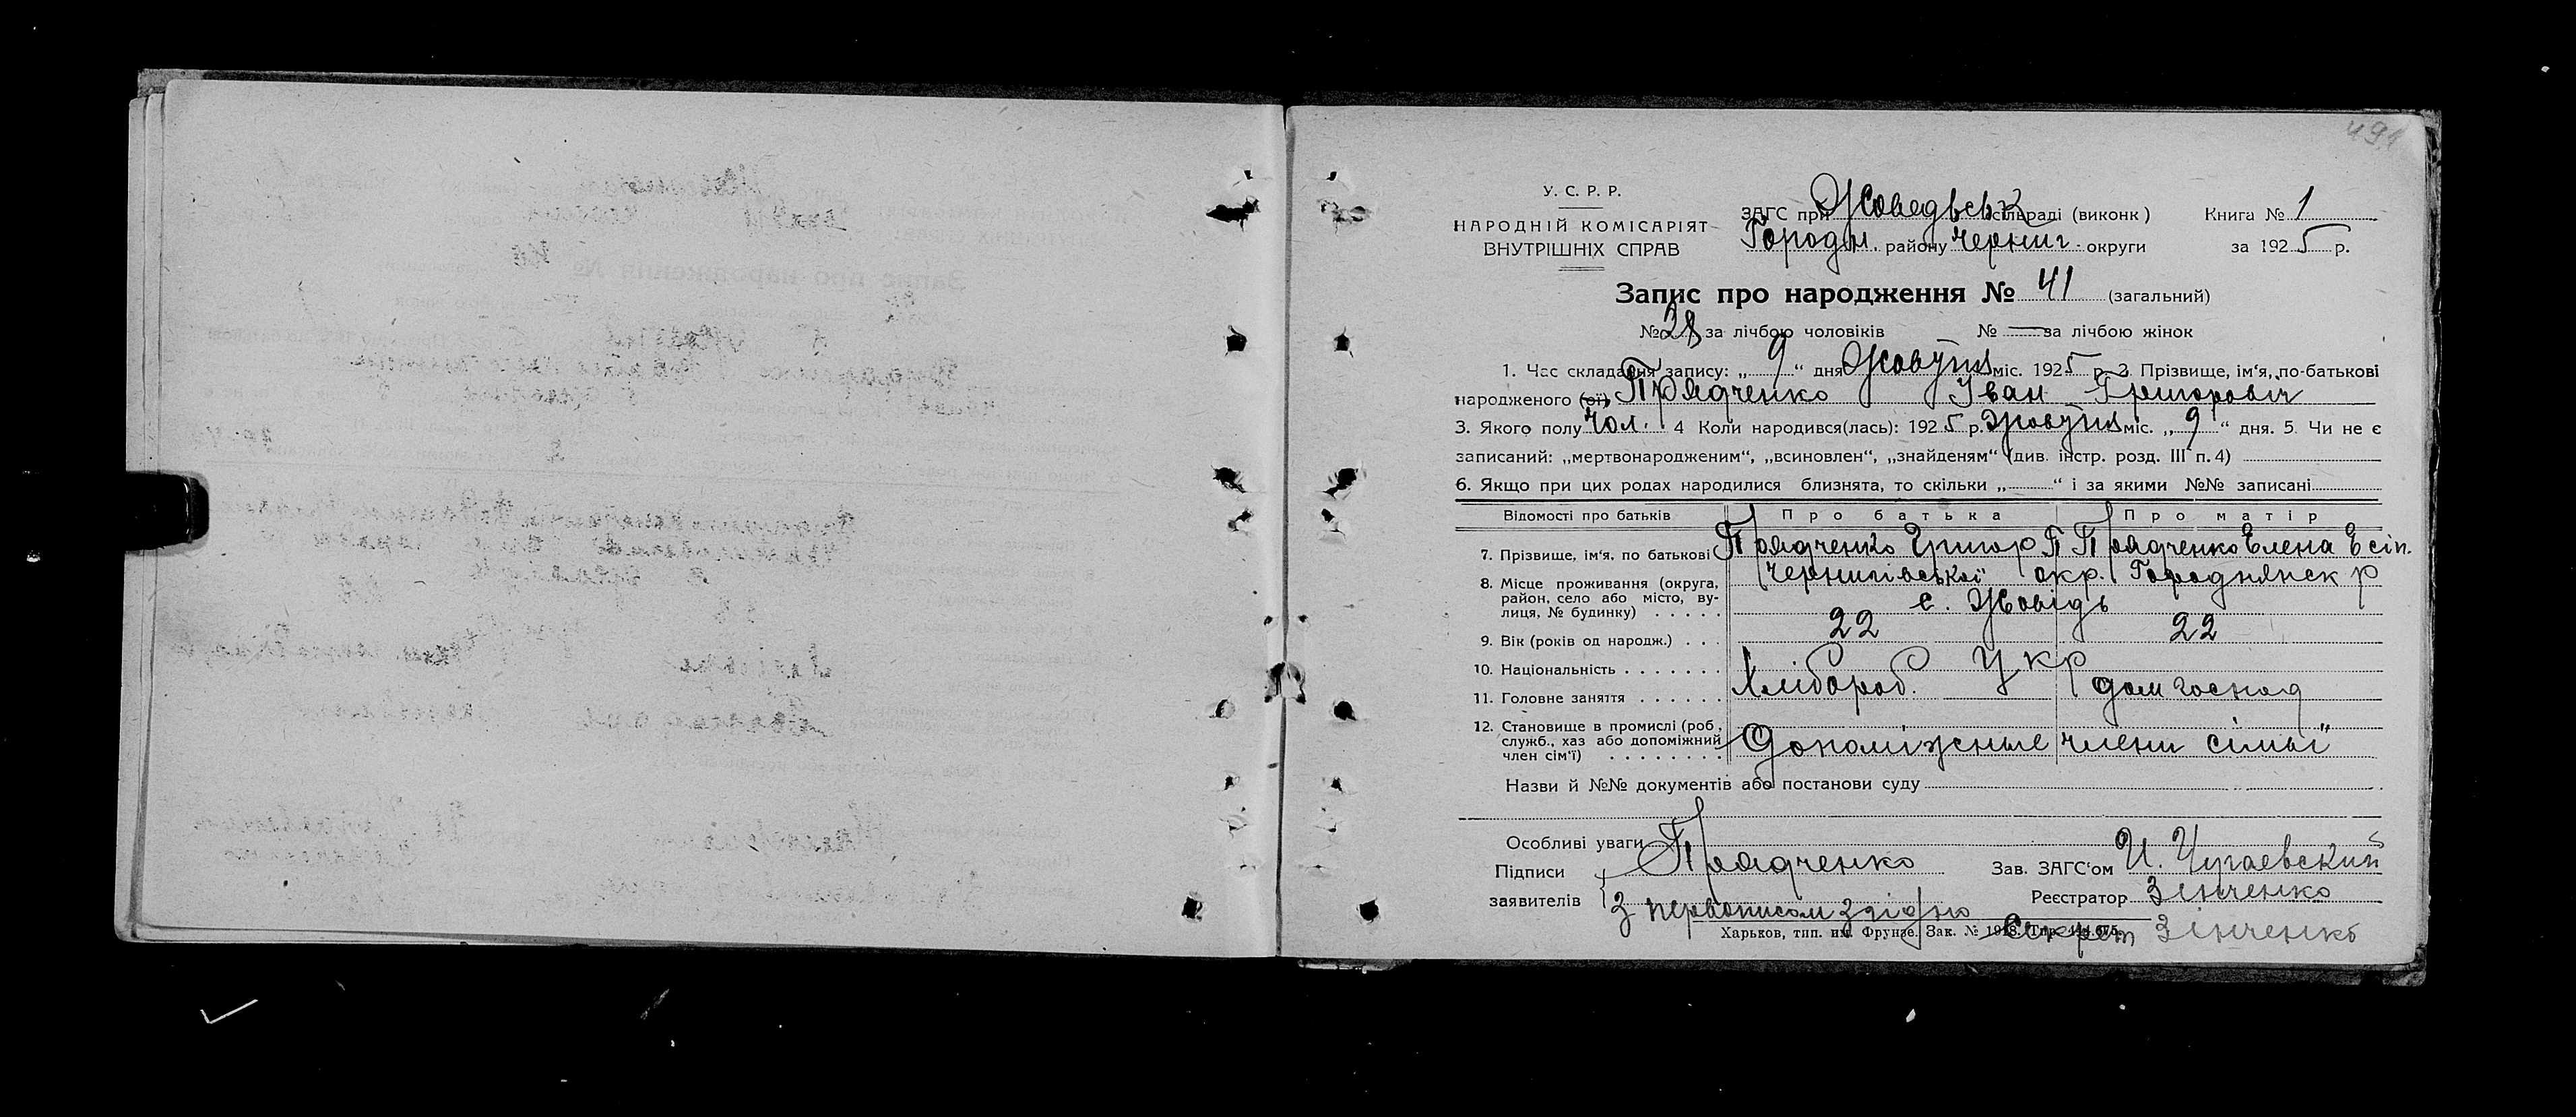 491
У. С. Р. Р.
НАРОДНІЙ КОМІСАРІЯТ
ВНУТРІШНІХ СПРАВ
ЗАГС при Жоведьськ сільраді (виконк) Книга № 1
Городн. району Черніг. округи за 1925 р.
Запис про народження № 41 (загальний)
№ 28 за лічбою чоловіків № — за лічбою жінок
1. Час складання запису: „ 9 “ дня Жовтня міс. 1925 р. 2. Прізвище, ім‘я, по-батькові
народженого (ої) Прядченко Іван Григоровіч
3. Якого полу Чол. 4 Коли народився(лась): 1925 р. Жовтня міс. „ 9 “ дня. 5. Чи не є
записаний: „мертвонародженим“, „всиновлен“, „знайденям“ (див. інстр. розд. III п. 4)
6. Якщо при цих родах народилися близнята, то скільки „ “ і за якими №№ записані
Відомості про батьків Про батька Про матір
7. Прізвище, ім‘я, по батькові Прядченко Григор П Прядченко Елена Есіп.
8. Місце проживання (округа, Чернигівської окр. Городнянск р
район, село або місто, ву-
лиця, № будинку) с. Жовідь
9. Вік (років од народж.) 22 22
10. Національність Укр
11. Головне заняття Хлібороб. дом господ
12. Становище в промислі (роб.,
служб., хаз або допоміжний Допоміжные члени сімьї
член сім‘ї)
Назви й №№ документів або постанови суду
Особливі уваги
Підписи Прядченко Зав. ЗАГС‘ом И. Чугаевский
заявителів Реєстратор Зінченко
З первописом згідно
Харьков, тип. им. Фрунзе. Зак. № Секрет Зінченко